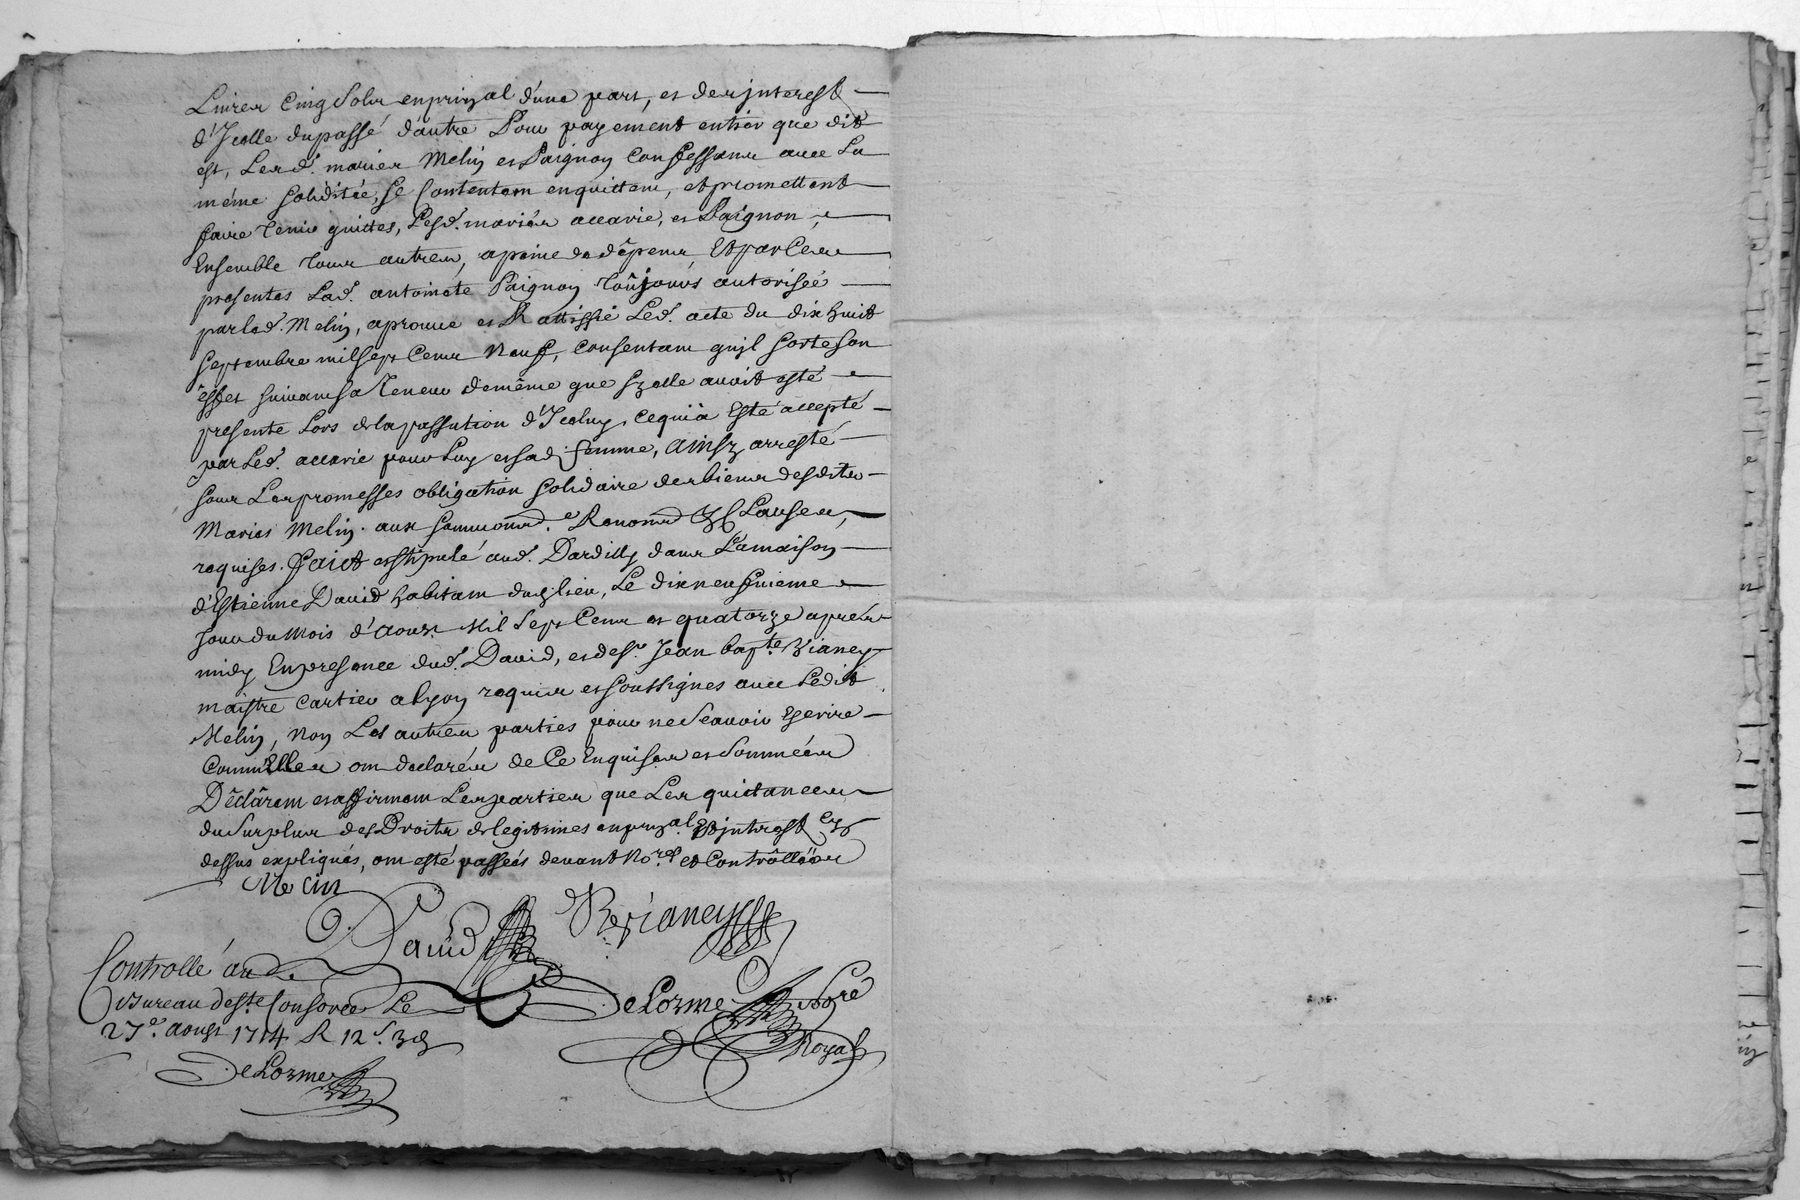 Livres Cinq Sols en prinpal d'une part, et des jnterest
d'Jcelle du passé d'autre Pour payement entier que dit
est, Lesd. mariés Melin et Paignon Confessans avec La
même soliditée, se Contentem en quittem, et promettent
faire tenir quittes, Lesd. mariés accarie, et Paignon,
Ensemble tous autres, a peine de dêpens, Et par Ces
presentes Lad. antoinete Paignon toûjours autorisée
par led. Melin, aprouve et Rattiffie Led. acte du dix huit
septembre mil sept Cens Neuf, Consentam qu'jl sorte son
êffet suivam sa teneur de même que sy elle avoit esté
presente Lors de la passation d'Jceluy, ce qui à Esté accepté
par Led. accarie pour Luy et sad. femme, Ainsy arresté
sous Les promesses obligation solidaire des biens desdits
Mariés Melin. aux soumions. Renons. & Clauses,
requises. Faict et stipulé aud. Dardilly dans La maison
d'Estienne David habitam dud. lieu, Le dix neufvieme
jour du Mois d'Aoust Mil Sept Cens et quatorze aprés
midy En presence dud. David, et de sr. Jean bapte. Vianey
maistre Cartier a Lyon requis et soussignés avec Ledit
Melin, Non Les autres parties pour ne sçavoir Escrire
Comm'Elles om declarés de Ce Enquises et sommées
Dêclârem et affirmem Les parties que Les quictances
du surplus des Droits de legitimes en prinpal Et jntrest Cy
dessus expliqués, om esté passées devant Nores. et Contrôllées
Me Cin
David
Vianey
Controllé au
Bureau de Ste Consorce Le
27e. aoust 1714 R 12s. 3d
DeLorme
DeLorme Noré
Royal